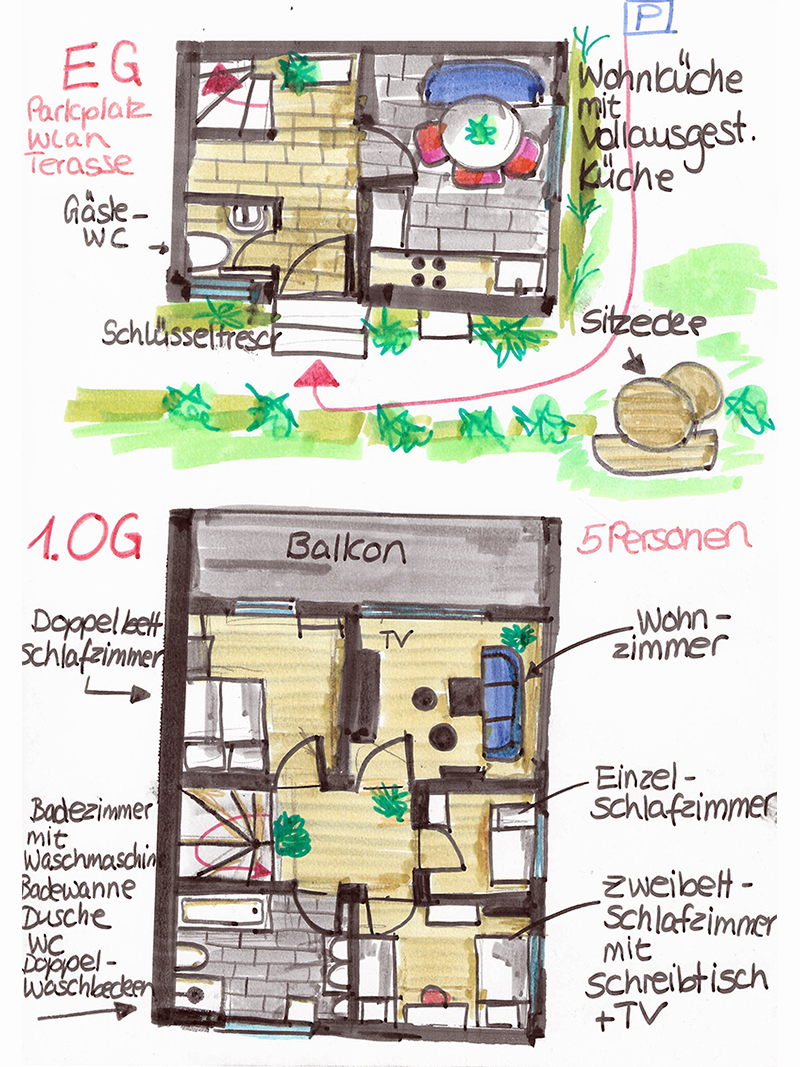 P
EG
Parkplatz
WLan
Terasse
Wohnküche
mit
vollausgest.
Küche
Gäste-
WC
Schlüsseltresor
Sitzecke
1.OG
Balkon
5 Personen
Doppelbett
Schlafzimmer
TV
Wohn-
zimmer
Einzel-
Schlafzimmer
Badezimmer
mit
Waschmaschin
Badewanne
Dusche
WC
Doppel-
Waschbecken
Zweibett-
Schlafzimmer
mit
Schreibtisch
+TV